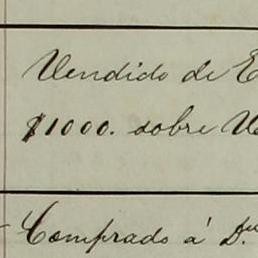 Vendido de E
$1000. sobre V
Comprado á D.